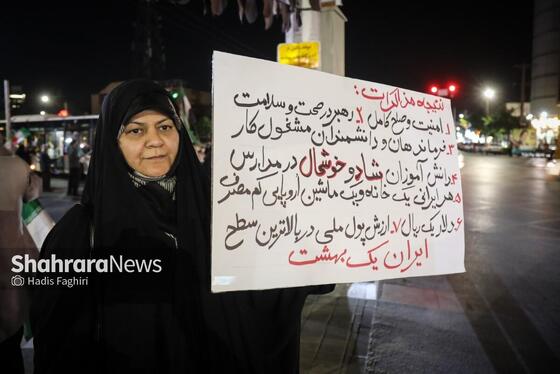 نتیجه مذاکرات:
۱. امنیت و صلح کامل ۲ رهبر در صحت و سلامت
۳. فرماندهان و دانشمندان مشغول کار
۴. دانش آموزان شاد و خوشحال در مدارس
۵. هر ایرانی یک خانه و یک ماشین اروپایی کم مصرف
۶. دلار یک ریال ۷. ارزش پول ملی در بالاترین سطح
ایران یک بهشت
ShahraraNews
Hadis Faghiri